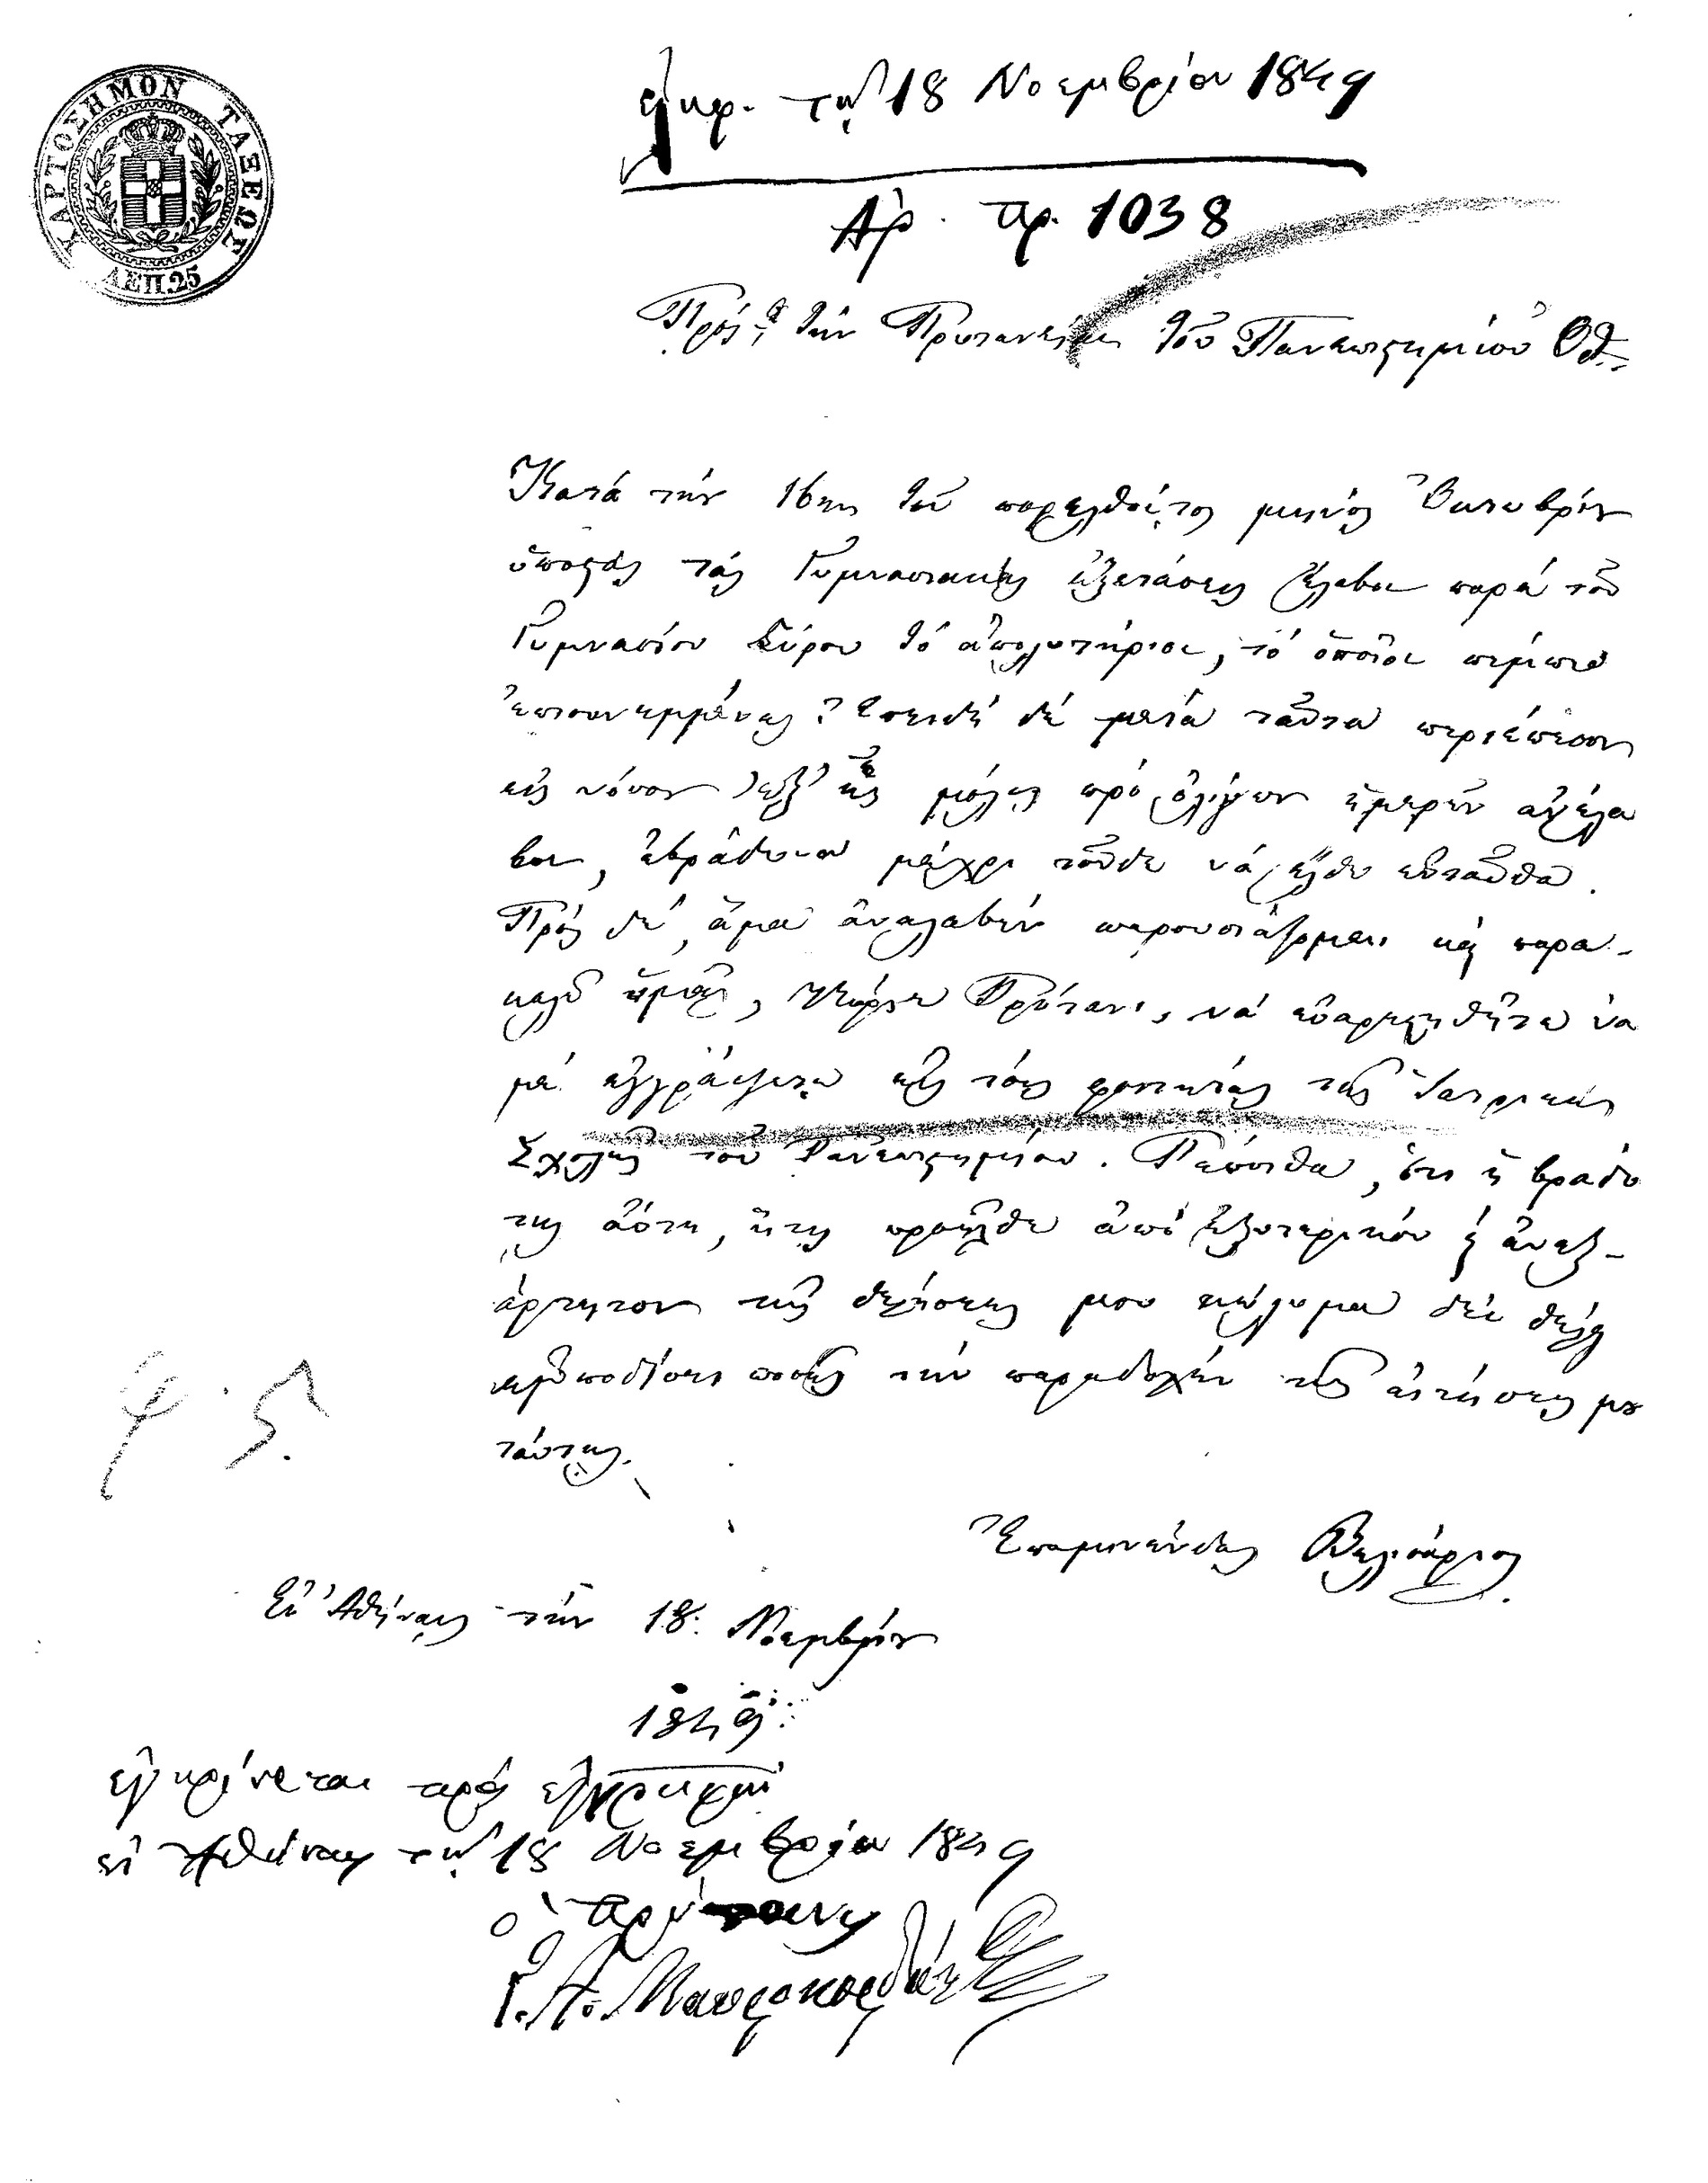 ΧΑΡΤΟΣΗΜΟΝ ΤΑΞΕΩΣ
ΛΕΠ.25
ἐγκρ. τῇ 18 Νοεμβρίου 1849
Ἀρ. πρ. 1038
Πρὸς τὴν Πρυτανείαν τοῦ Πανεπιστημίου Ὀθ.
Κατὰ τὴν 16ην τοῦ παρελθόντος μηνὸς Ὀκτωβρίου
ὑποστὰς τὰς Γυμνασιακὰς ἐξετάσεις ἔλαβον παρὰ τοῦ
Γυμνασίου Σύρου τὸ ἀπολυτήριον, τὸ ὁποῖον πέμπω
ἐπισυνημμένως. Ἐπειδὴ δὲ μετὰ ταῦτα περιέπεσον
εἰς νόσον, ἐξ ἧς μόλις πρὸ ὀλίγων ἡμερῶν ἀνέλα
βον, ἐβράδυνα μέχρι τοῦδε νὰ ἔλθω ἐνταῦθα.
Πρὸς δὲ, ἅμα ἀναλαβὼν παρουσιάζομαι καὶ παρα-
καλῶ ὑμᾶς, Κύριε Πρύτανι, νὰ εὐαρεστηθῆτε νὰ
μὲ ἐγγράψητε εἰς τοὺς φοιτητὰς τῆς Ἰατρικῆς
Σχολῆς τοῦ Πανεπιστημίου. Πέποιθα, ὅτι ἡ βραδύ
της αὕτη, ἥτις προῆλθε ἀπὸ ἐξωτερικὸν ἢ ἀνεξ-
άρτητον τῆς θελήσεώς μου κώλυμα δὲν θέλει
ἐμποδίσει ποσῶς τὴν παραδοχὴν τῆς αἰτήσεώς μου
ταύτης.
φ. 5.
Ἐπαμινώνδας Βελισάριος
Ἐν Ἀθήναις τὴν 18. Νοεμβρίου
1849
ἐγκρίνεται πρὸς ἐγγραφὴν
ἐν Ἀθήναις τῇ 18 Νοεμβρίου 1849
ὁ πρύτανις
Γ. Α. Μαυροκορδάτος